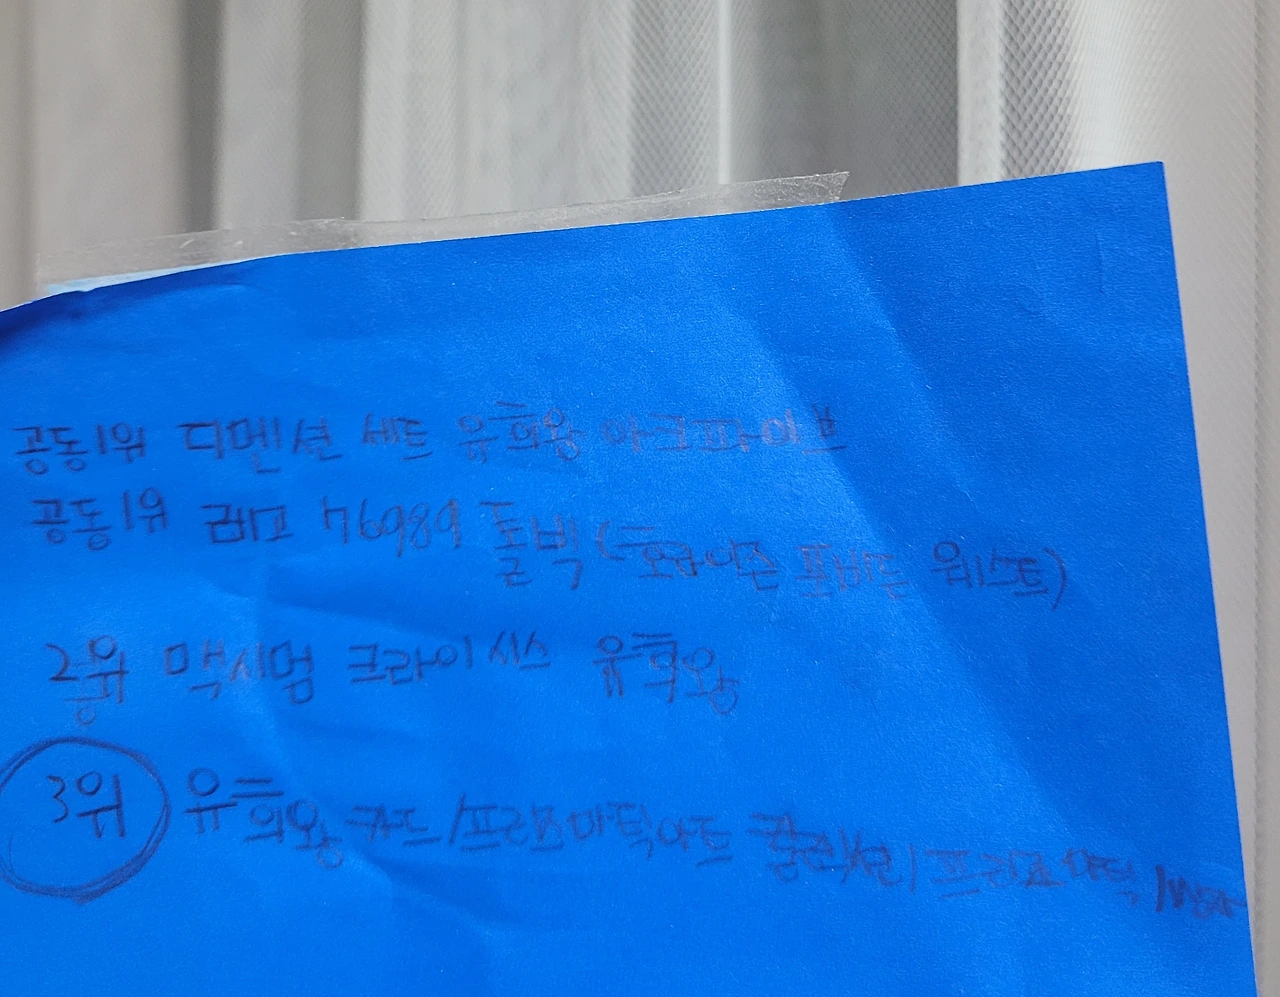 공동1위 디멘션 세트 유희왕 아크파이브
공동1위 레고 76989 톨넥 (호라이즌 포비든 웨스트)
2위 맥시멈 크라이시스 유희왕
3위 유희왕 카드/프리즈마틱아트 콜렉션/프리즈마틱